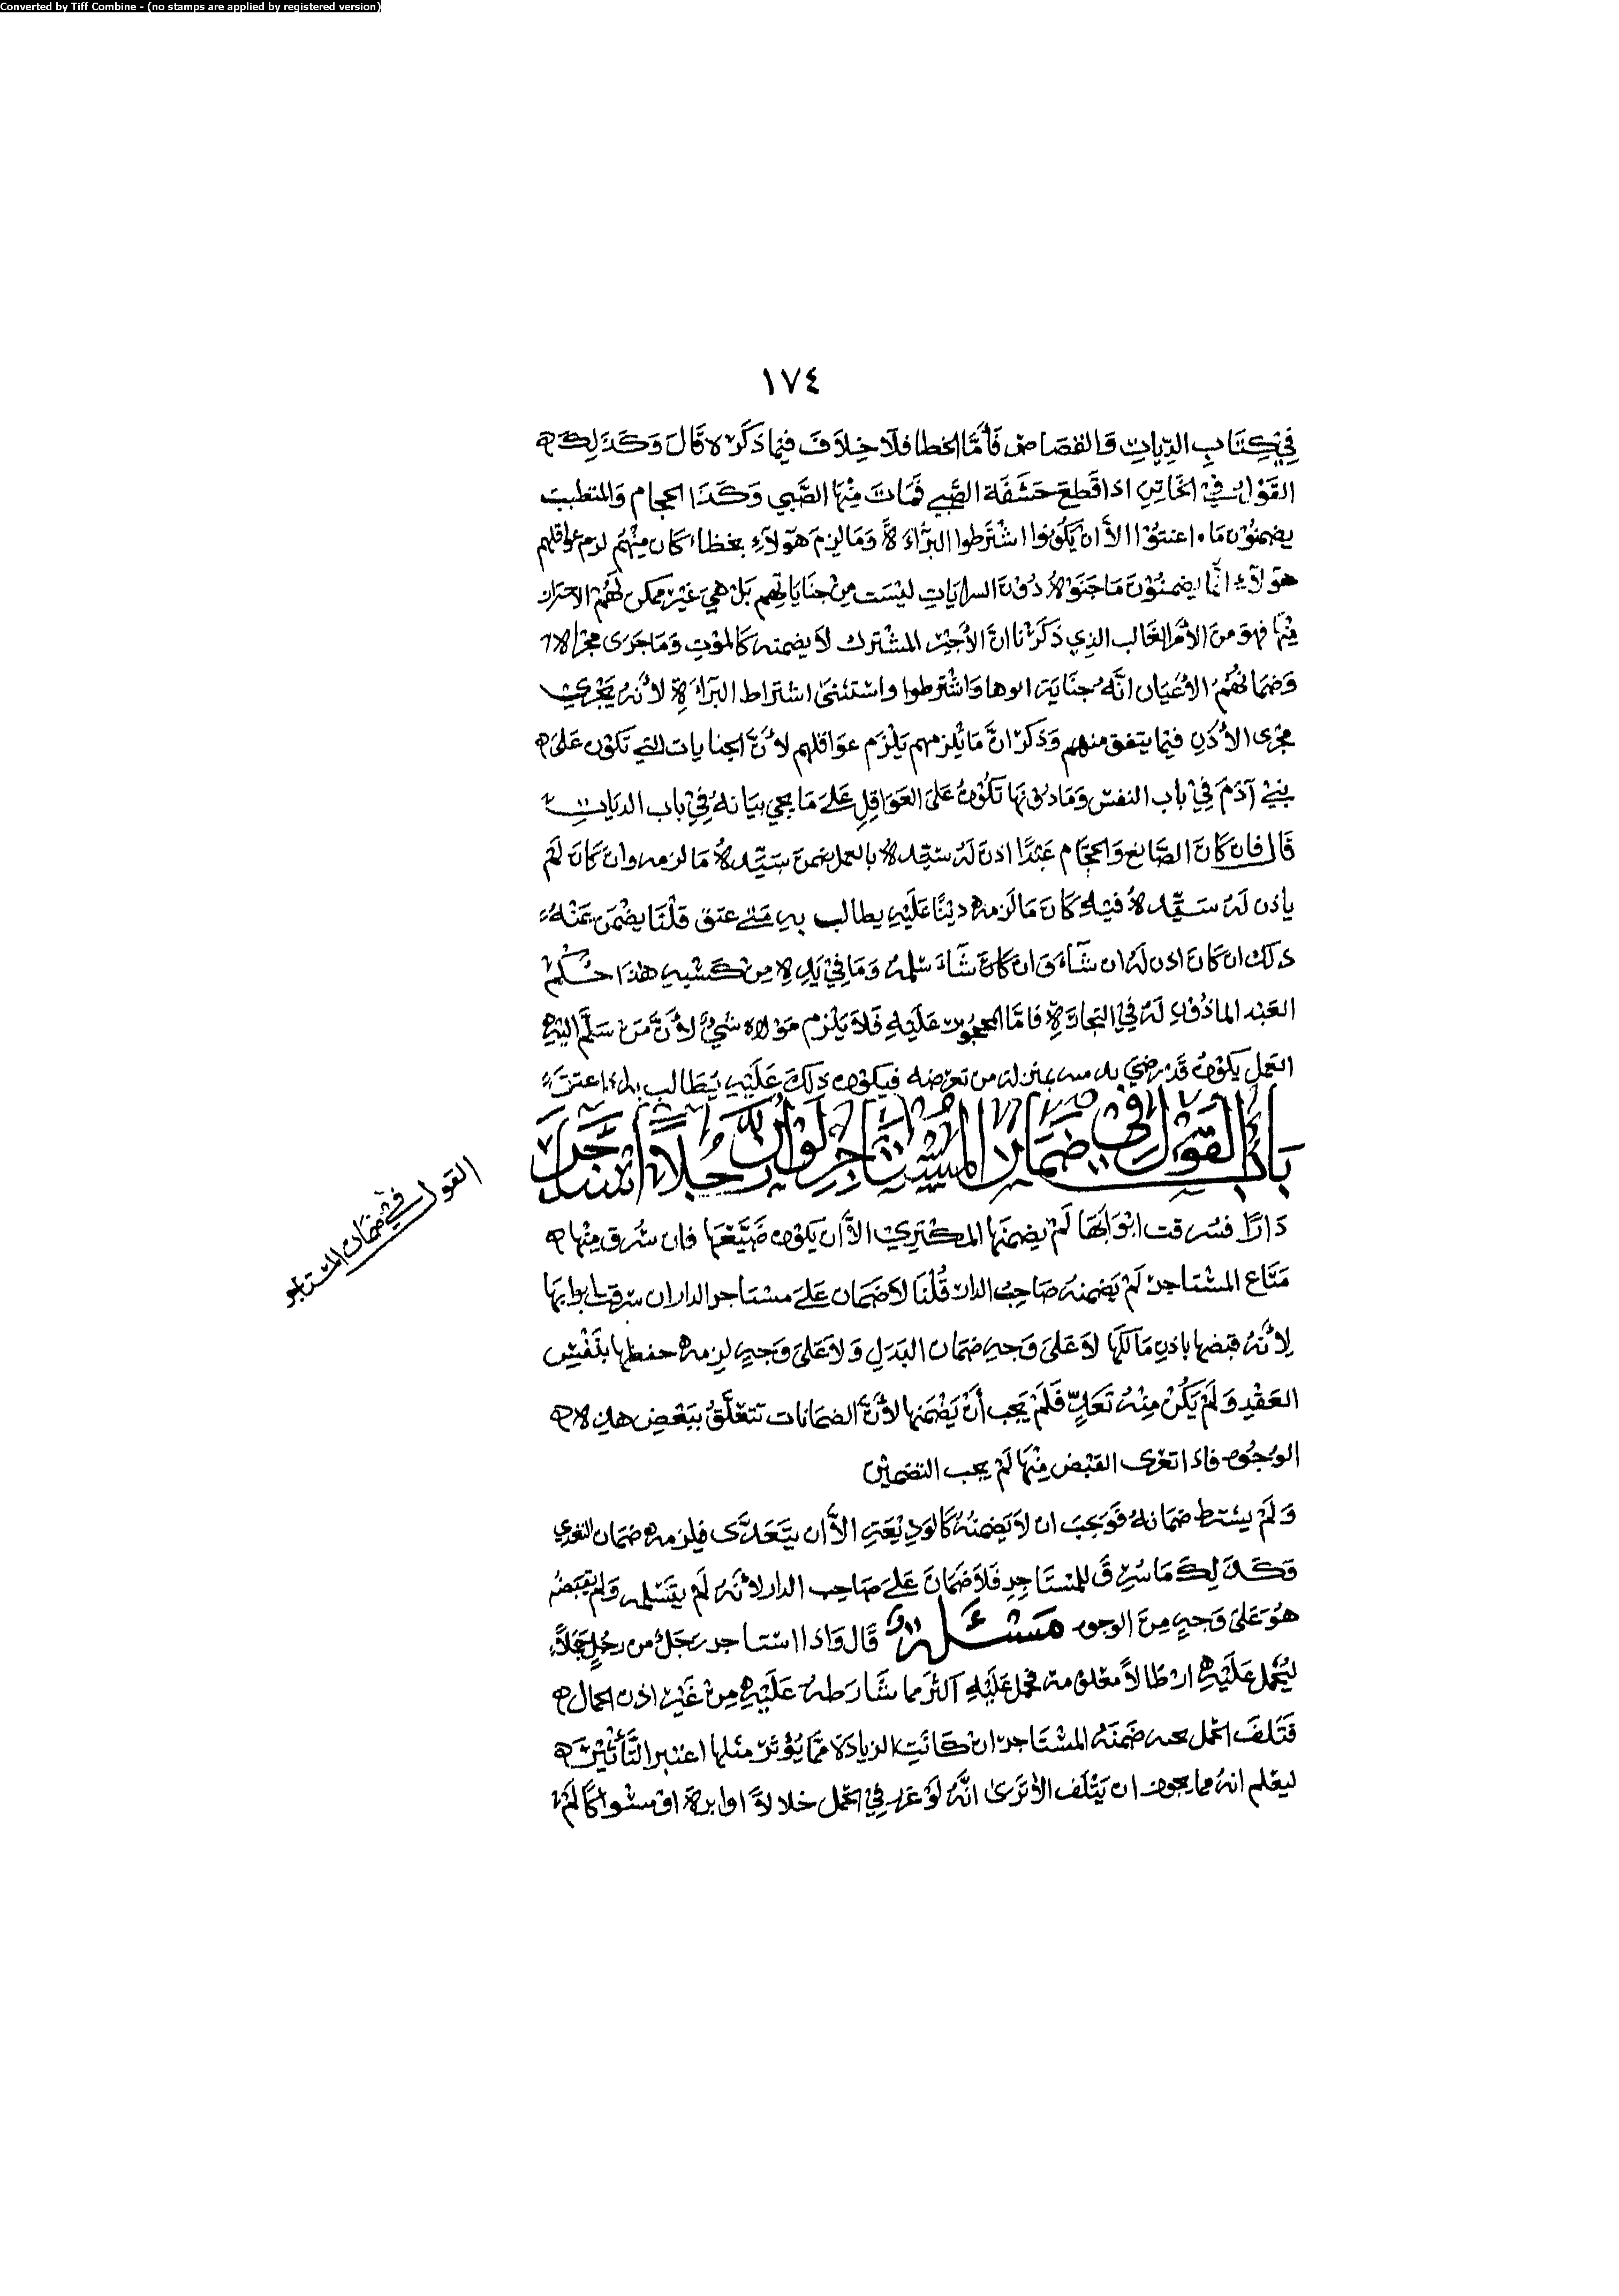 Converted by Tiff Combine - (no stamps are applied by registered version)
١٧٤
في كتاب الديات والقصاص فأما الخطا فلا خلاف فيما ذكره قال وكذلك
القول في الخاتن اذا قطع حشفة الصبي فمات منها الصبي وكذا الحجام والمتطبب
يضمنون ما اعنتوا الا أن يكونوا اشترطوا البراءة وما لزم هولاء بخطاء كان منهم لزم عواقلهم
هولاء انما يضمنون ما جنوه دون السرايات ليست من جناياتهم بل هي غير ممكن لهم الاحتراز
منها فهو من الأمر الغالب الذي ذكرنا ان الأجير المشترك لا يضمنه كالموت وما جرى مجراه
وضمانهم الأعيان انه جناية واشترطوا واستثنى اشتراط البراءة لأنه يجري
مجرى الأذن فيما يتفق منهم وذكر ان ما يلزمهم يلزم عواقلهم لأن الجنايات التي تكون على
بني آدم في باب النفس وما دونها تكون على العواقل على ما يجي بيانه في باب الديات
قال فان كان الصانع والحجام عبدا اذن له سيده بالعمل ضمن سيده ما لزمه وان كان لم
ياذن له سيده فيه كان ما لزمه دينا عليه يطالب به متى عتق قلنا يضمن عنه
ذلك ان كان اذن له ان شاء وان كان شاء سلمه وما في يده من كسبه هذا حكم
العبد الماذون له في التجارة فاما المحجور عليه فلا يلزم مولاه شيء لأن من سلم اليه
العمل يكون قد رضي بذمته بمنزلة من تعرضه فيكون ذلك عليه يطالب به اذا عتق
باب القول في ضمان المستاجر لو أن رجلا استاجر
القول في ضمان المستاجر
دارا فسرقت ابوابها لم يضمنها المكتري الا أن يكون ضيعها فان سرق منها
متاع المستاجر لم يضمنه صاحب الدار قلنا لا ضمان على مستاجر الدار ان سرقت ابوابها
لأنه قبضها باذن مالكها لا على وجه ضمان البدل ولا على وجه لزمه حفظها بنفس
العقد ولم يكن منه تعد فلم يجب أن يضمنها لأن الضمانات تتعلق ببعض هذه
الوجوه فاذا تعرى القبض منها لم يجب التضمين
ولم يشترط ضمانه فوجب ان لا يضمنه كالوديعة الا أن يتعدى فيلزمه ضمان التعدي
وكذلك ما سرق للمستاجر فلا ضمان على صاحب الدار لأنه لم يتسلمه ولم يقبضه
هو على وجه من الوجوه مسئلة قال واذا استاجر رجل من رجل جملا
ليحمل عليه ارطالا معلومة فحمل عليه أكثر مما شارطه عليه من غير اذن الجمال
فتلف الجمل ضمنه المستاجر ان كانت الزيادة مما يؤثر مثلها اعتبر التأثير
ليعلم انه مما يجوز ان يتلف الا ترى انه لو في الحمل خلالا او ابرة او سواكا لم